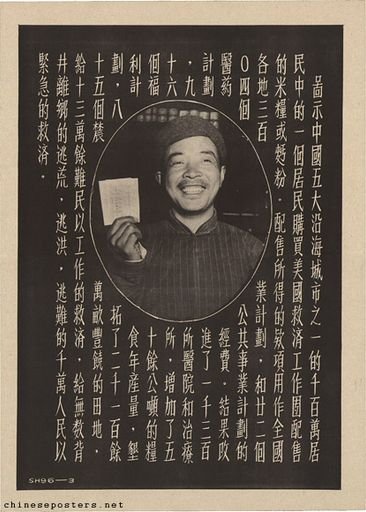 圖示中國五大沿海城市之一的千百萬居
民中的一個居民購買美國救濟工作團配售
的米糧或麵粉．配售所得的款項用作全國
各地三百
〇四個
醫藥
計劃
，九
十六
個福
利計
劃，八
十五個農
業計劃，和廿二個
公共事業計劃的
經費．結果改
進了一千三百
所醫院和治療
所，增加了五
十餘公噸的糧
食年產量，墾
拓了二千一百餘
萬畝豐饒的田地，
給十三萬餘難民以工作的救濟，給無數背
井離鄉的逃荒，逃洪，逃難的千萬人民以
緊急的救濟．
SH96—3
chineseposters.net